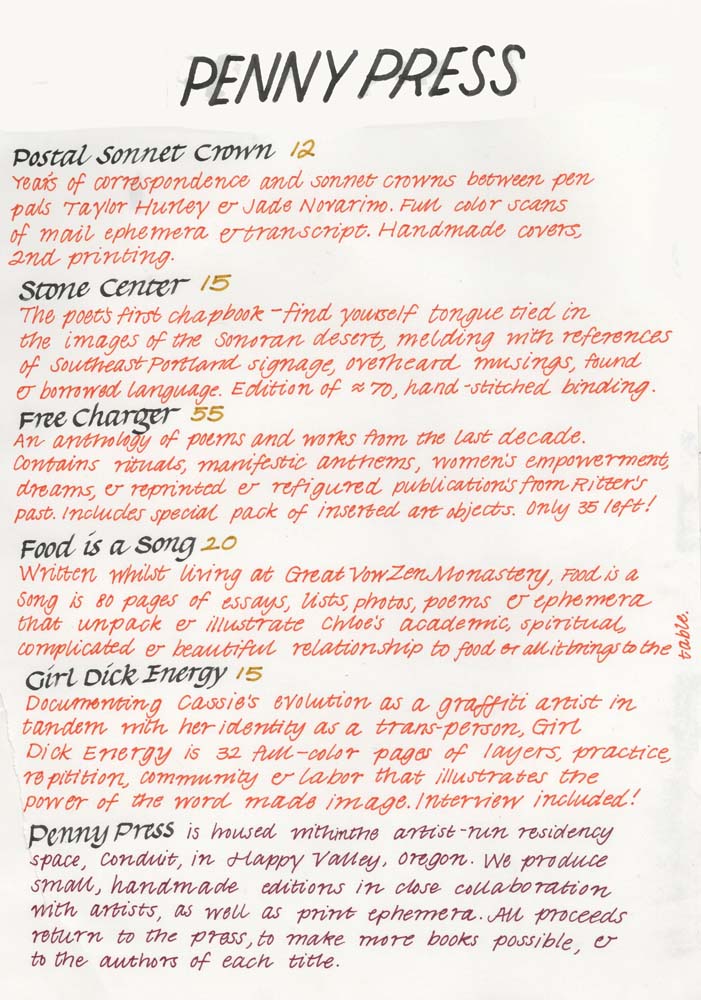 PENNY PRESS
Postal Sonnet Crown 12
Years of correspondence and sonnet crowns between pen
pals Taylor Hurley & Jade Novarino. Full color scans
of mail ephemera & transcript. Handmade covers,
2nd printing.
Stone Center 15
The poet's first chapbook - find yourself tongue tied in
the images of the Sonoran desert, melding with references
of Southeast Portland signage, overheard musings, found
& borrowed language. Edition of ≈ 70, hand-stitched binding.
Free Charger 55
An anthology of poems and works from the last decade.
Contains rituals, manifestic anthems, women's empowerment,
dreams, & reprinted & refigured publication's from Ritter's
past. Includes special pack of inserted art objects. Only 35 left!
Food is a Song 20
Written whilst living at Great Vow Zen Monastery, Food is a
Song is 80 pages of essays, lists, photos, poems & ephemera
that unpack & illustrate Chloe's academic, spiritual,
complicated & beautiful relationship to food & all it brings to the table.
Girl Dick Energy 15
Documenting Cassie's evolution as a graffiti artist in
tandem with her identity as a trans-person, Girl
Dick Energy is 32 full-color pages of layers, practice,
repitition, community & labor that illustrates the
power of the word made image. Interview included!
Penny Press is housed within the artist-run residency
space, Conduit, in Happy Valley, Oregon. We produce
small, handmade editions in close collaboration
with artists, as well as print ephemera. All proceeds
return to the press, to make more books possible, &
to the authors of each title.